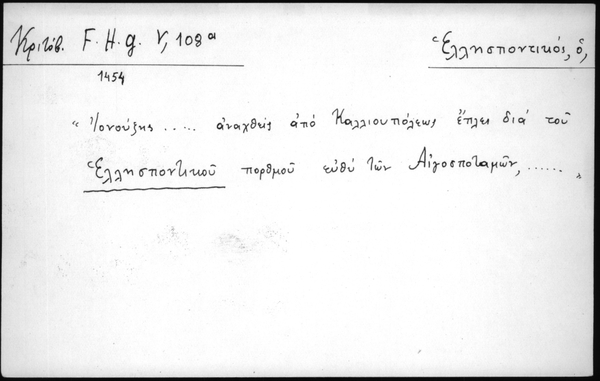 Κριτόβ. F. H. g. V, 108α
Ἑλλησποντικός, ὁ,
1454
"Ἰονούζης ..... ἀναχθεὶς ἀπό Καλλιουπόλεως ἔπλει διά τοῦ
Ἑλλησποντικοῦ πορθμοῦ εὐθύ τῶν Αἰγοσποταμῶν, ......"